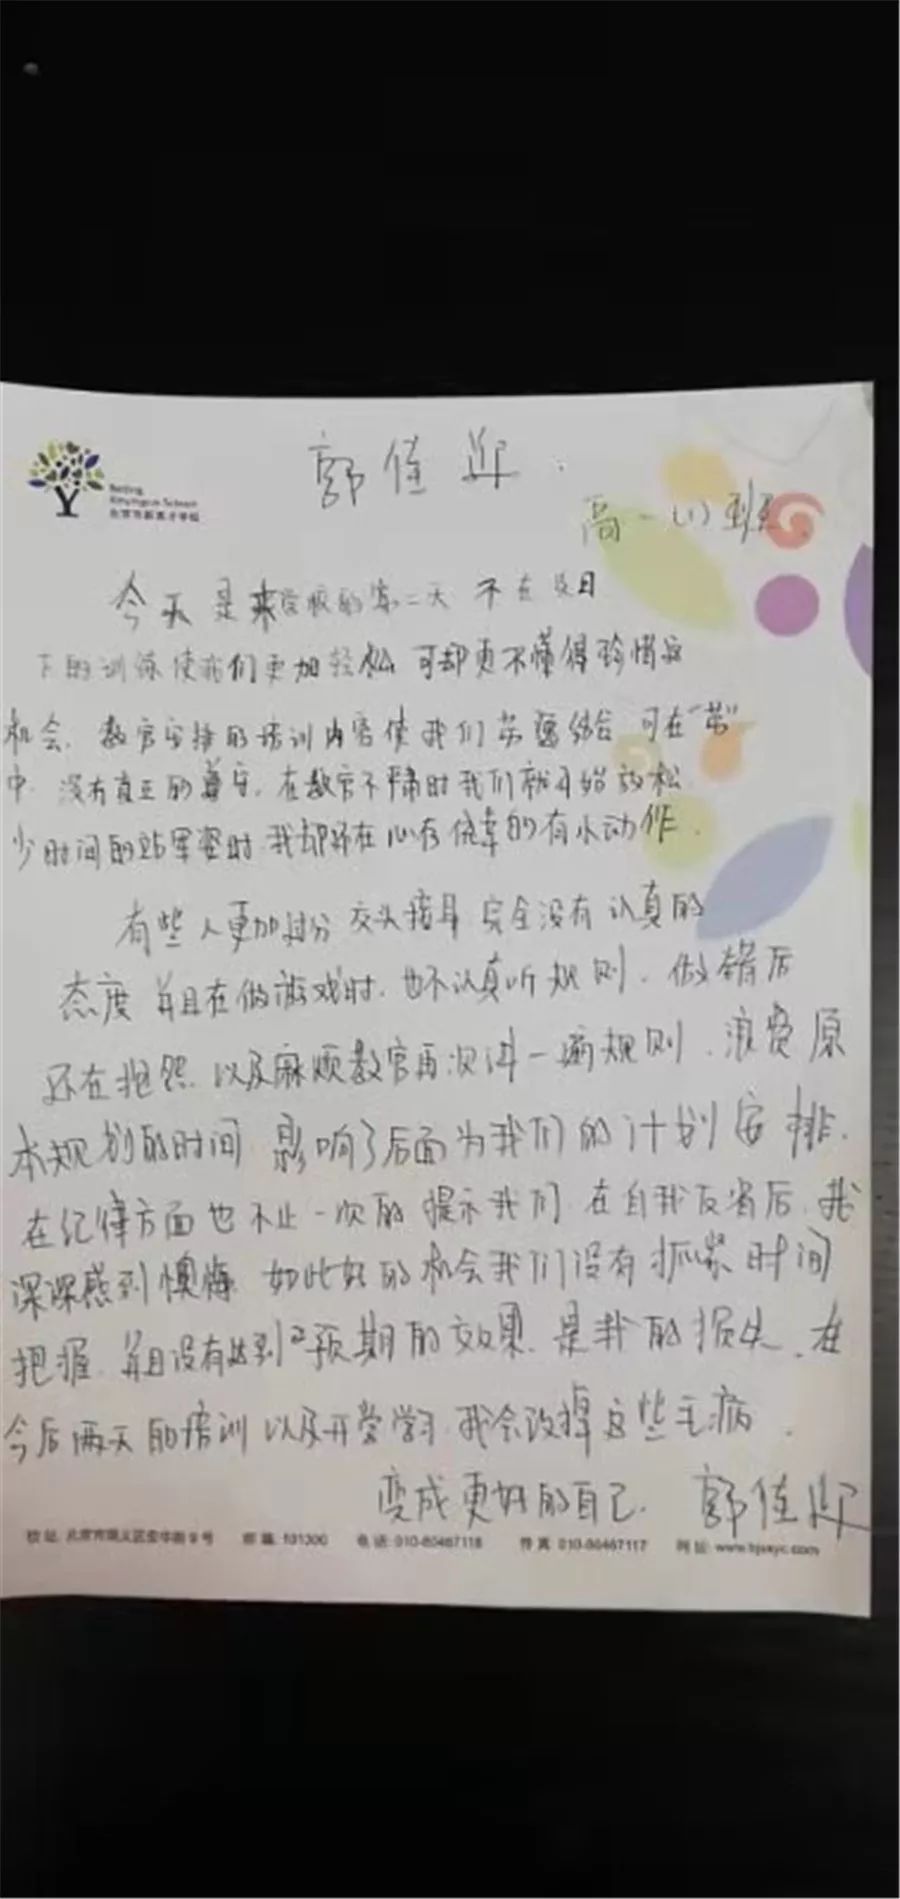 郭佳
Beijing
Xinyingcai School
北京市新英才学校
高一(1)班
今天是来学校的第二天 不在烈日
下的训练使我们更加轻松 可却更不懂得珍惜这
机会. 教官安排的培训内容使我们劳逸结合 可在“劳”
中 没有真正的遵守. 在教官不严肃时我们就开始放松
少时间的站军姿时 我却还在心存侥幸的有小动作.
有些人更加过分 交头接耳 完全没有认真的
态度 并且在做游戏时. 也不认真听规则. 做错后
还在抱怨. 以及麻烦教官再次讲一遍规则. 浪费原
本规划的时间 影响了后面为我们的计划安排.
在纪律方面也不止一次的提示我们. 在自我反省后. 我
深深感到懊悔. 如此好的机会我们没有抓紧时间
把握. 并且没有达到预期的效果. 是我的损失. 在
今后两天的培训以及开学学习 我会改掉这些毛病.
变成更好的自己. 郭佳
校址: 北京市顺义区安华街9号 邮编: 101300 电话: 010-80467118 传真: 010-80467117 网址: www.bjxyc.com